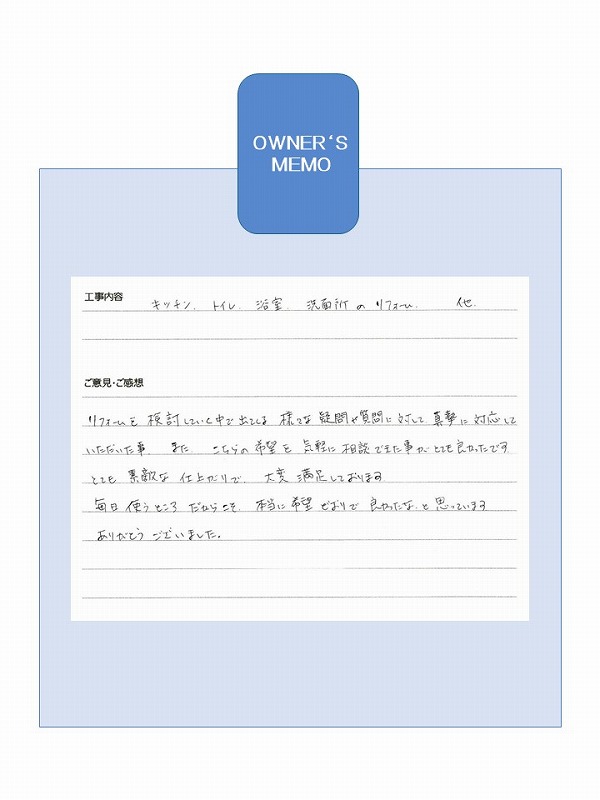 OWNER‘S
MEMO
工事内容 キッチン、トイレ、浴室、洗面所のリフォーム、 他、
ご意見・ご感想
リフォームを検討していく中で出てくる様々な疑問や質問に対して真摯に対応して
いただいた事 また こちらの希望を気軽に相談できた事がとても良かったです
とても素敵な仕上がりで、大変満足しております
毎日使うところだからこそ、本当に希望どおりで良かったな、と思っています
ありがとうございました。